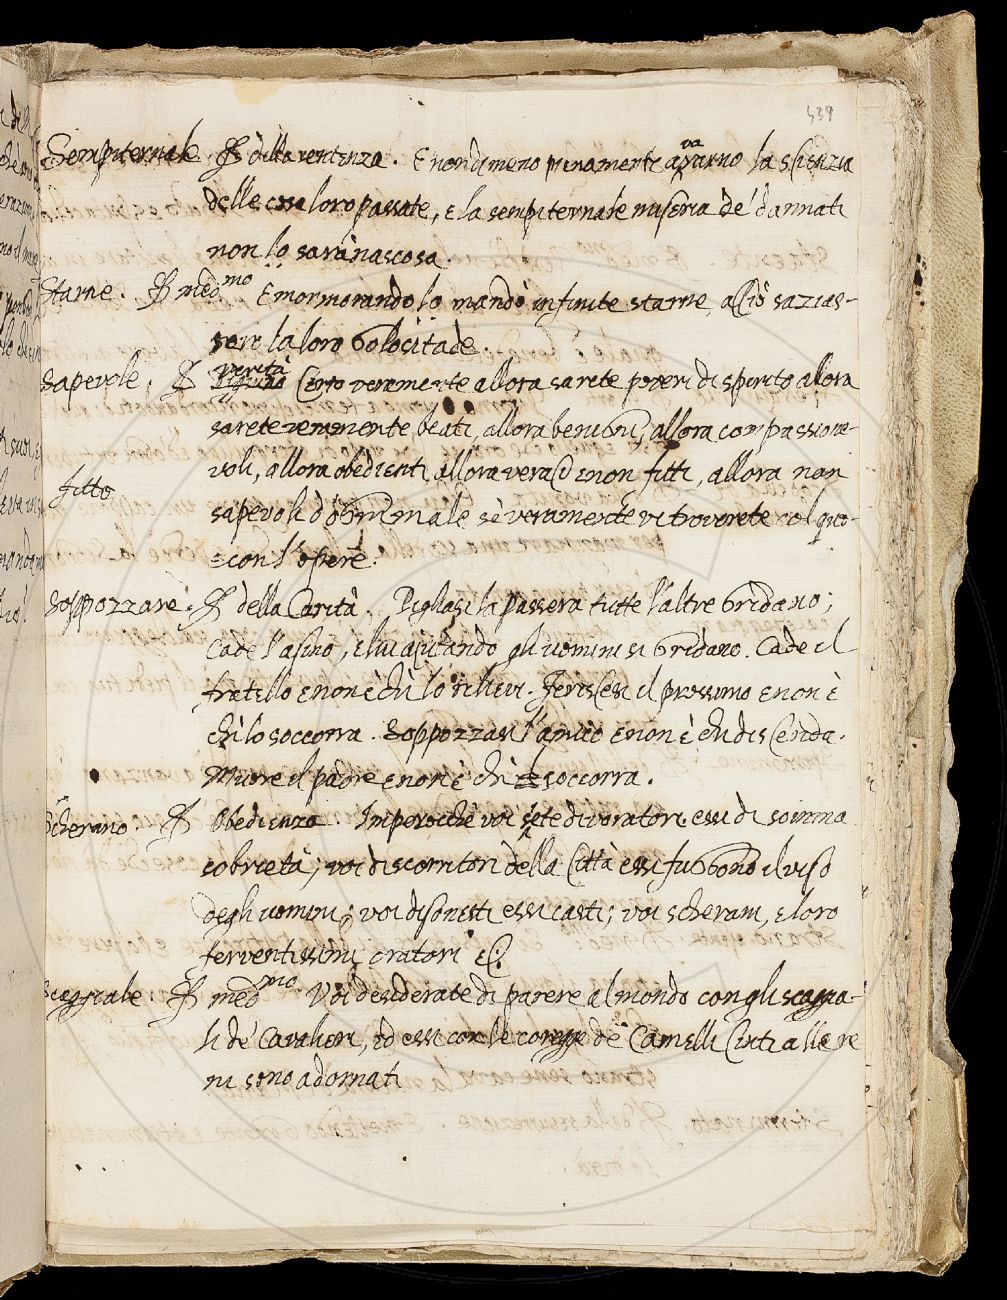 439
Sempiternale. S. della sentenza. E nondimeno pienamente avranno la scienza
delle cose loro passate, e la sempiternale miseria de' dannati
non lo sarà nascosa.
Starne. S. med.mo E mormorando lo mandò infinite starne, acciò sazias-
sero la loro golositade.
Sapevole. S. verità Certo veramente allora sarete poveri di spirito allora
sarete veramente beati, allora benigni, allora compassione-
voli, allora obedienti, allora veraci e non fitti, allora non
fitto
sapevoli d'ogni male se veramente vi troverete col quo-
e con l'opere.
Soppozzare. S. della Carità. Pigliasi la passera tutte l'altre gridano;
Cade l'asino, e lui ajutando gli uomini si gridano. Cade il
fratello e non è chi lo rilievi. Feriscesi il prossimo e non è
chi lo soccorra. Soppozzasi l'amico e non è chi discenda.
Muore il padre e non è chi soccorra.
Scherano. S. Obedienza. Imperocchè voi sete divoratori essi di somma
sobrietà; voi discorritori della Città essi fuggono il viso
degli uomini; voi disonesti essi casti; voi scherani, e loro
ferventissimi oratori &c.
Scaggiale. S. med.mo Voi desiderate di parere al mondo con gli scaggia-
li de' Cavalieri, ed essi con le coregge de' Camelli Cinti alle re
ni sono adornati